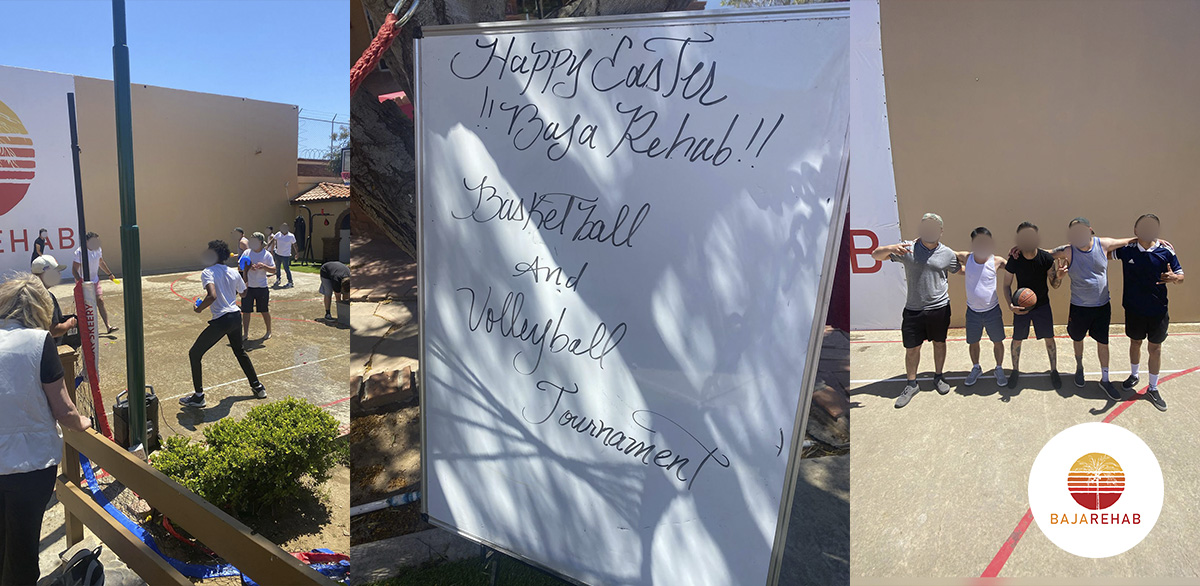 EHAB
Happy Easter
!! Baja Rehab!!
Basketball
And
Volleyball
Tournament
B
BAJAREHAB